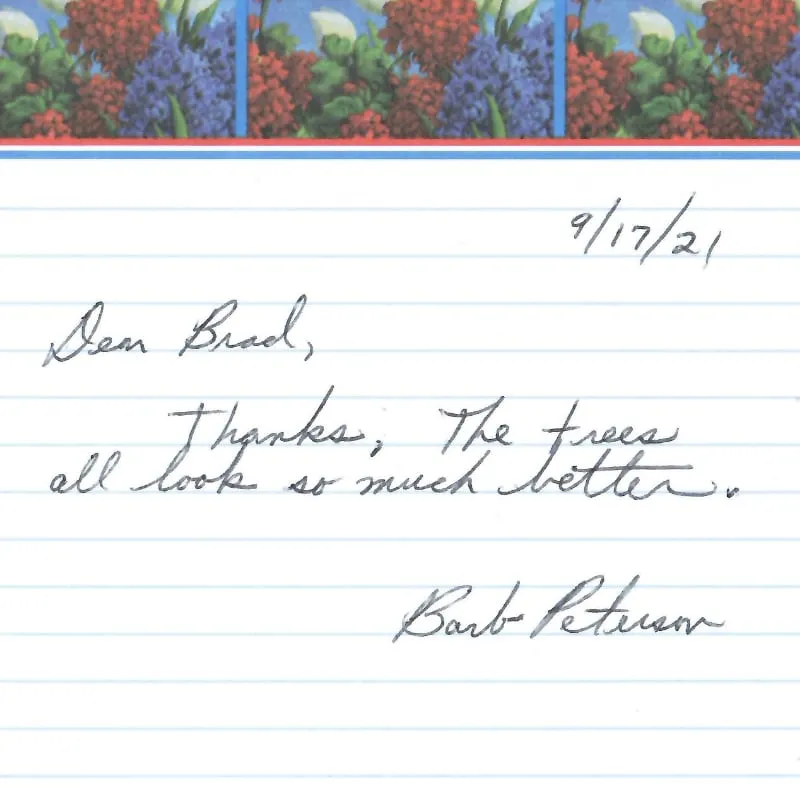 9/17/21
Dear Brad,
Thanks, The trees
all look so much better.
Barb Peterson